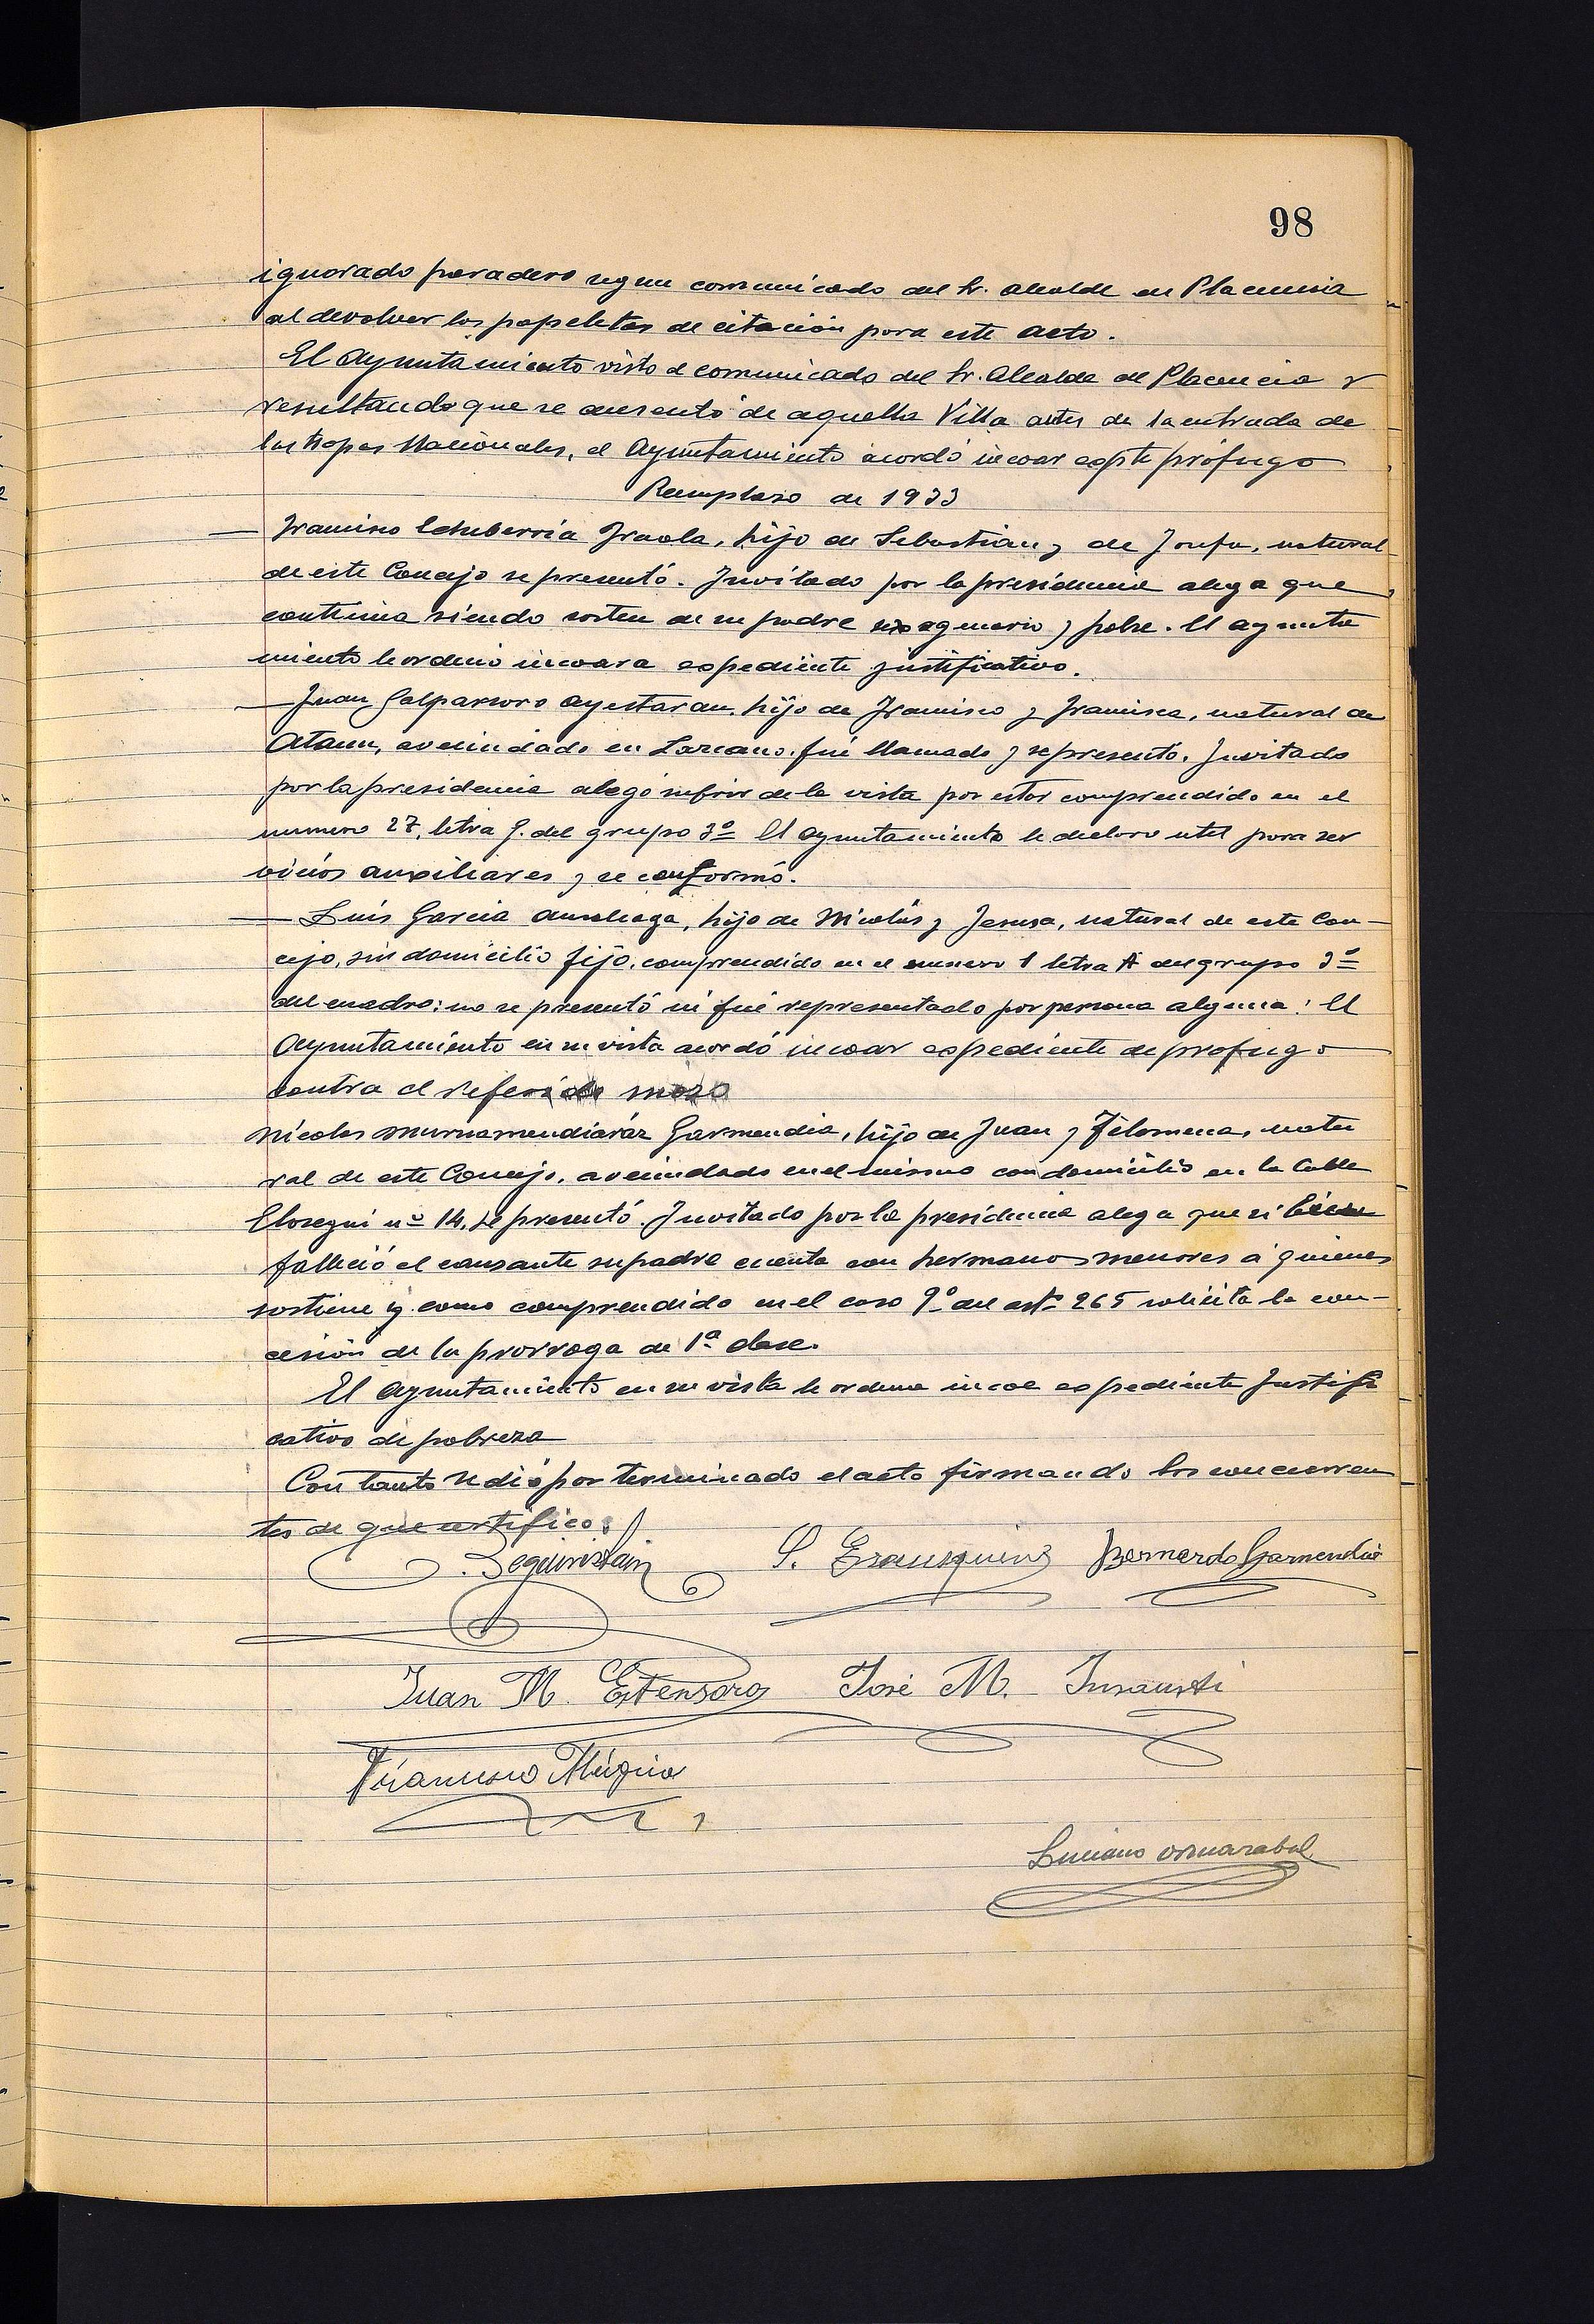 98
ignorado paradero segun comunicado del Sr. Alcalde de Placencia
al devolver las papeletas de citación para este acto.
El Ayuntamiento visto el comunicado del Sr. Alcalde de Placencia y
resultando que se ausentó de aquella Villa antes de la entrada de
las tropas Nacionales, el Ayuntamiento acordó incoar expte prófugo
Remplazo de 1933
— Francisco Echeberria Iraola, hijo de Sebastian y de Josefa, natural
de este Concejo se presentó. Invitado por la presidencia alega que
continua siendo sosten de su padre sexagenario y pobre. El ayunta
miento le ordenó incoara expediente justificativo.
— Juan Galparsoro Ayestaran, hijo de Francisco y Francisca, natural de
Ataun, avecindado en Lazcano. fué llamado y se presentó. Invitado
por la presidencia alegó sufrir de la vista por estar comprendido en el
numero 27, letra G. del grupo 3º El Ayuntamiento le declaro util para ser
vicios auxiliares y se conformó.
— Luis Garcia , hijo de Nicolás y Jesusa, natural de este Con-
cejo, sin domicilio fijo, comprendido en el numero 1 letra A del grupo 3º
del cuadro: no se presentó ni fué representado por persona alguna: El
Ayuntamiento en su vista acordó incoar expediente de profugo
contra el referido mozo
Nicolas Murnamendiaráz Garmendia, hijo de Juan y Filomena, natu
ral de este Concejo, avecindado en el mismo con domicilio en la Calle
Elosegui nº 14, se presentó. Invitado por la presidencia alega que si bien
falleció el causante su padre cuenta con hermanos menores á quienes
sostiene y como comprendido en el caso 9º del artº 265 solicita la con-
cesión de la prorroga de 1ª clase.
El Ayuntamiento en su vista le ordena incoe expediente Justifi
cativo de pobreza
Con tanto se dió por terminado el acto firmando los concurren
tes de que certifico.
Bernardo Garmendia
Juan M. Estensoro José M. Insausti
Francisco Múgica
Luciano